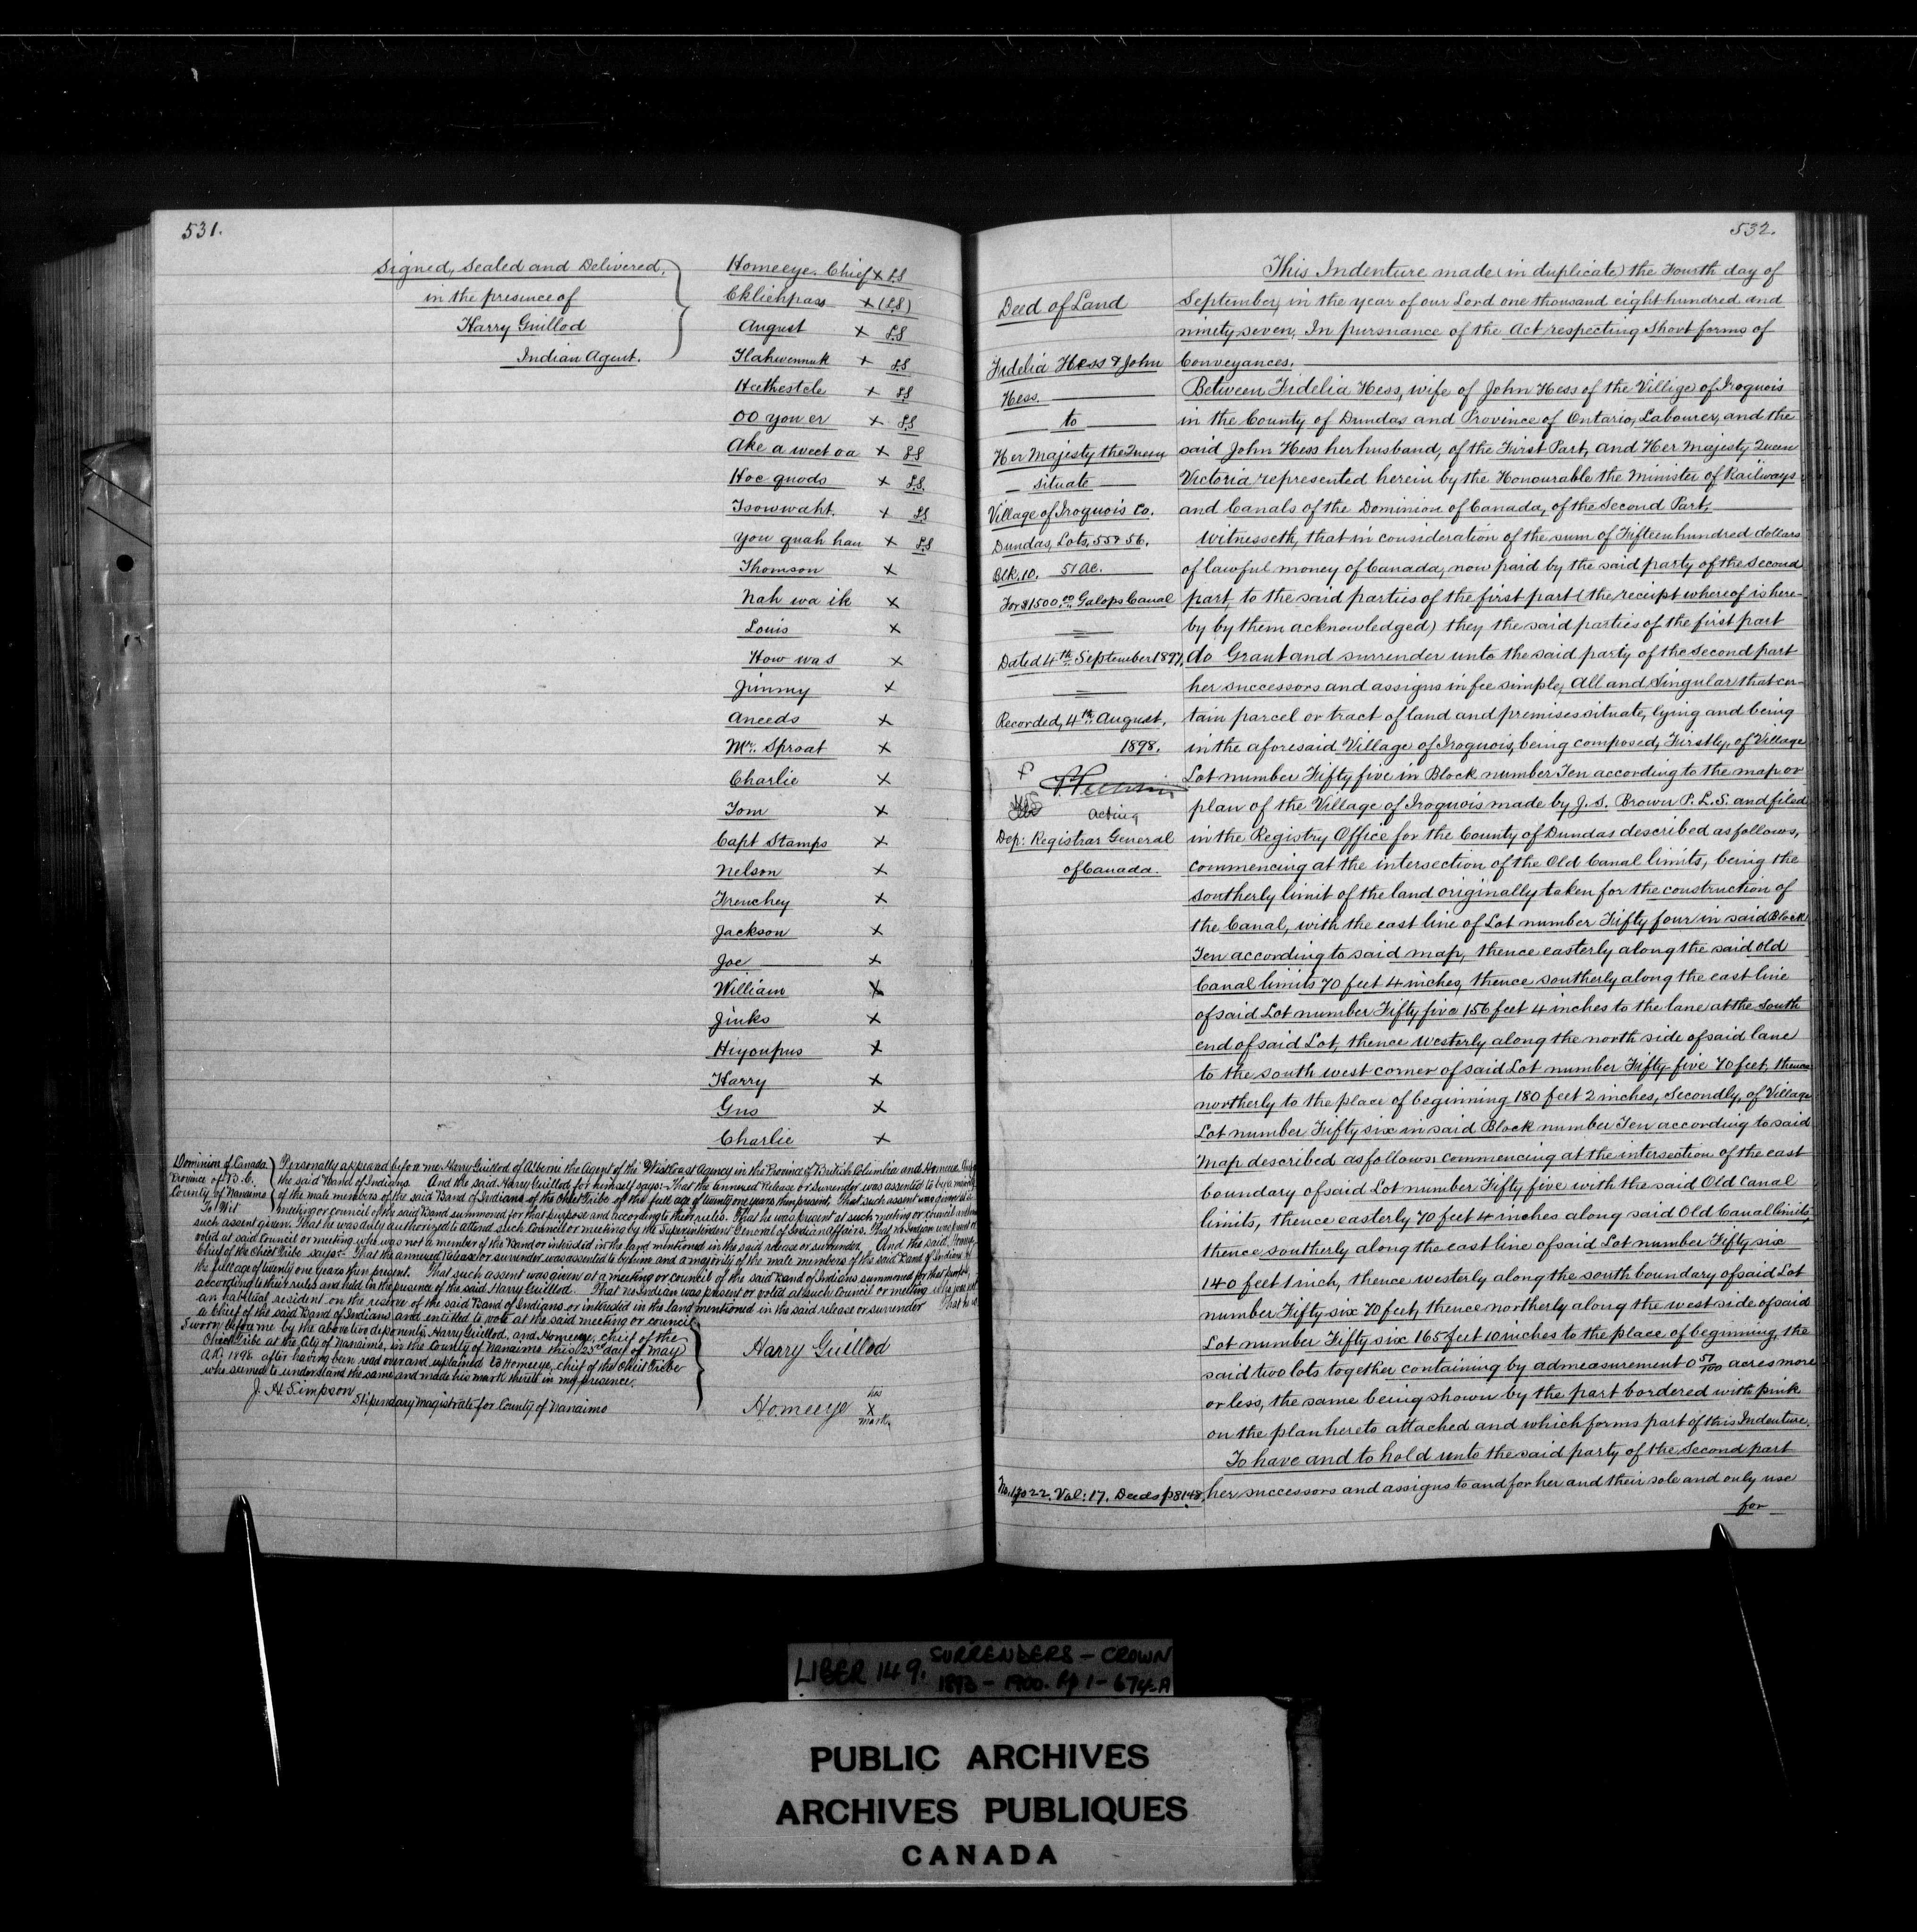 531.
Signed, Sealed and Delivered,
in the presence of
Harry Guillod
Indian Agent.
Homeeye. Chief X L.S
Ekliehpass X (L.S)
August X L.S
Hahwennuk X L.S
Haethestele X L.S
OO you er X L.S
Ake a weet oa X L.S
Hoc quods X L.S.
Tsowwaht. X L.S
You quah hau X L.S
Thomson X
Nah wa ik X
Louis X
How was X
Jimmy X
Aneeds X
Mr. Sproat X
Charlie X
Tom X
Capt Stamps X
Nelson X
Frenchey X
Jackson X
Joe X
William X
Jinks X
Hiyoupus X
Harry X
Gus X
Charlie X
Dominion of Canada Personally appeared before me Harry Guillod of Alberni the Agent of the West Coast Agency in the Province of British Columbia and Homeeye Chief
Province of B.C. the said Band of Indians. And the said Harry Guillod for himself says:- That the annexed Release or Surrender was assented to by a majority
County of Nanaimo of the male members of the said Band of Indians of the Oheet Tribe of the full age of twenty one years then present. That such assent was given at a
To Wit meeting or council of the said Band summoned for that purpose and according to their rules. That he was present at such meeting or council and heard
such assent given. That he was duly authorized to attend such Council or meeting by the Superintendent General of Indian Affairs. That no Indian was present or
voted at said Council or meeting who was not a member of the Band or interested in the land mentioned in the said release or surrender. And the said Homeeye
Chief of the Oheit Tribe says:- That the annexed Release or surrender was assented to by him and a majority of the male members of the said Band of Indians of
the full age of twenty one years then present. That such assent was given at a meeting or council of the said Band of Indians summoned for that purpose,
according to their rules and held in the presence of the said Harry Guillod. That no Indian was present or voted at such Council or meeting who was not
an habitual resident on the reserve of the said Band of Indians or interested in the land mentioned in the said release or surrender. That he is
a Chief of the said Band of Indians and entitled to vote at the said meeting or council.
Sworn before me by the above two deponents Harry Guillod, and Homeeye, chief of the
Oheit Tribe at the City of Nanaimo, in the County of Nanaimo this 25th day of May
A.D. 1898 after having been read over and explained to Homeeye, chief of the Oheit Tribe
who seemed to understand the same and made his mark thereto in my presence.
J. H. Simpson
Stipendary Magistrate for County of Nanaimo
Harry Guillod
his
Homeeye X
mark
532.
Deed of Land
Fidelia Hess & John
Hess.
to
Her Majesty the Queen
situate
Village of Iroquois Co.
Dundas, Lots, 55 & 56.
Blk. 10. 51 ac.
For $1500.00 Galops Canal
Dated 4th September 1897,
Recorded, 4th August,
1898.
acting
Dep: Registrar General
of Canada.
This Indenture made (in duplicate) the Fourth day of
September, in the year of our Lord one thousand eight hundred and
ninety seven, In pursuance of the Act respecting Short forms of
Conveyances.
Between Fidelia Hess, wife of John Hess of the Village of Iroquois
in the County of Dundas and Province of Ontario, Labourer, and the
said John Hess her husband, of the First Part, and Her Majesty Queen
Victoria represented herein by the Honourable the Minister of Railways
and Canals of the Dominion of Canada, of the Second Part,
Witnesseth, that in consideration of the sum of Fifteen hundred dollars
of lawful money of Canada, now paid by the said party of the second
part, to the said parties of the first part (the receipt whereof is here-
by by them acknowledged) they the said parties of the first part
do Grant and surrender unto the said party of the second part
her successors and assigns in fee simple, All and Singular that cer-
tain parcel or tract of land and premises situate, lying and being
in the aforesaid Village of Iroquois, being composed, Firstly, of Village
Lot number Fifty five in Block number Ten according to the map or
plan of the Village of Iroquois made by J. S. Brower P. L. S. and filed
in the Registry Office for the County of Dundas described as follows,
commencing at the intersection of the Old Canal limits, being the
southerly limit of the land originally taken for the construction of
the Canal, with the east line of Lot number Fifty four in said Block
Ten according to said map, thence easterly along the said old
Canal limits 70 feet 4 inches, thence southerly along the east line
of said Lot number Fifty five 156 feet 4 inches to the lane at the south
end of said Lot, thence westerly along the north side of said lane
to the south west corner of said Lot number Fifty five 70 feet, thence
northerly to the place of beginning 180 feet 2 inches, Secondly, of Village
Lot number Fifty six in said Block number Ten according to said
Map described as follows commencing at the intersection of the east
boundary of said Lot number Fifty five with the said Old Canal
limits, thence easterly 70 feet 4 inches along said Old Canal limits,
thence southerly along the east line of said Lot number Fifty six
140 feet 1 inch, thence westerly along the south boundary of said Lot
number Fifty six 70 feet, thence northerly along the west side of said
Lot number Fifty six 165 feet 10 inches to the place of beginning, the
said two lots together containing by admeasurement 0 51/100 acres more
or less, the same being shown by the part bordered with pink
on the plan hereto attached and which forms part of this Indenture.
To have and to hold unto the said party of the Second part
her successors and assigns to and for her and their sole and only use
for
Vol: 17. Deeds p 8148,
LIBER 149. SURRENDERS - CROWN
1893 - 1900. Pp 1 - 674-A
PUBLIC ARCHIVES
ARCHIVES PUBLIQUES
CANADA